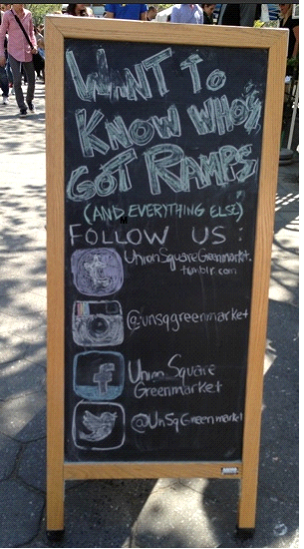 WANT TO
KNOW WHO'S
GOT RAMPS
(AND EVERYTHING ELSE)
FOLLOW US:
UnionSquareGreenmarkt.
tumblr.com
@unsqgreenmarket
f
Union Square
Greenmarket
@UnSqGreenmarket